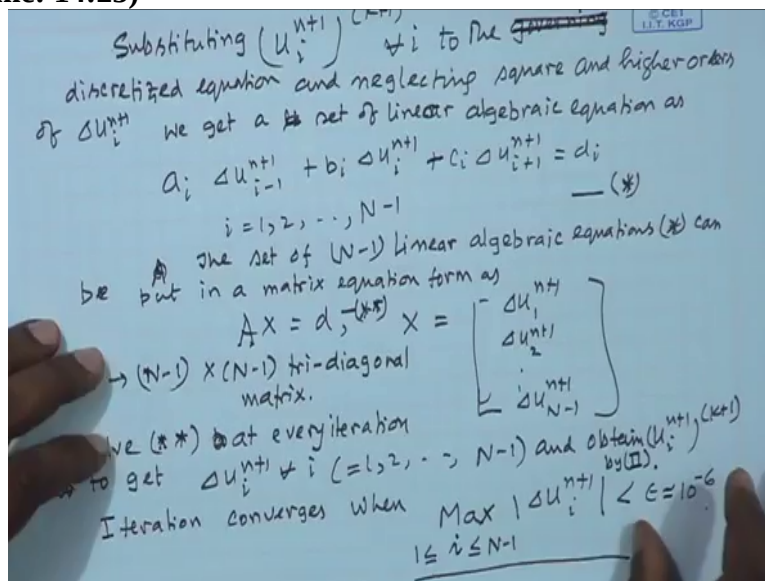 Substituting (u_i^{n+1})^{(k+1)} ∀ i to the governing
© CET
I.I.T. KGP
discretized equation and neglecting square and higher orders
of Δu_i^{n+1} we get a set of linear algebraic equation as
a_i Δu_{i-1}^{n+1} + b_i Δu_i^{n+1} + c_i Δu_{i+1}^{n+1} = d_i
— (*)
i = 1, 2, .., N-1
The set of (N-1) linear algebraic equations (*) can
be put in a matrix equation form as
AX = d, —(**) X = [Δu_1^{n+1} Δu_2^{n+1} . Δu_{N-1}^{n+1}]
→ (N-1) × (N-1) tri-diagonal
matrix.
lve (**) at every iteration
to get Δu_i^{n+1} ∀ i (=1, 2, .., N-1) and obtain (u_i^{n+1})^{(k+1)}
by (II).
Iteration converges when Max |Δu_i^{n+1}| < ε = 10^{-6}
1 ≤ i ≤ N-1